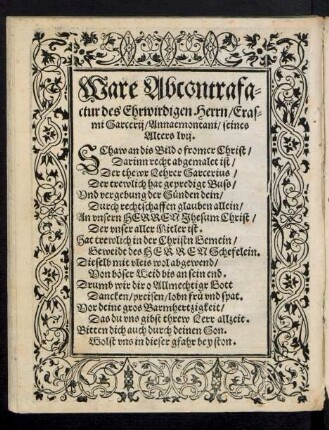 Ware Abcontrafa-
ctur des Ehrwirdigen Herrn/ Eras-
mi Sarcerij/ Annaemontani/ seines
Alters lvij.
SChaw an dis Bild o fromer Christ/
Darinn recht abgemalet ist/
Der thewr Lehrer Sarcerius/
Der trewlich hat gepredigt Buss/
Vnd vergebung der Sünden dein/
Durch rechtschaffen glauben allein/
An vnsern HERREN Jhesum Christ/
Der vnser aller Mitler ist.
Hat trewlich in der Christn Gemein/
Geweidet des HERREN Schefelein.
Dieselb mit vleis wol abgewend/
Von böser Weid bis an sein end.
Drumb wir dir o Allmechtigr Gott
Dancken/ preisen/ lobn frü vnd spat.
Vor deine gros Barmhertzigkeit/
Das du vns gibst threw Lerr allzeit.
Bitten dich auch durch deinen Son.
Wolst vns in dieser gfahr beyston.